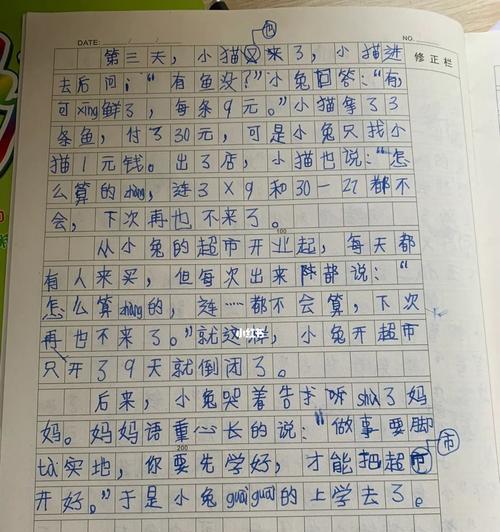 DATE: / /
NO.
修正栏
第三天，小猫又来了，小猫进
也
去后问："有鱼没？"小兔回答："有，
可xīng鲜了，每条9元。"小猫拿了3
条鱼，付了30元，可是小兔只找小
猫1元钱。出了店，小猫也说："怎
么算的zhàng，连3×9和30-27都不
会，下次再也不来了。
100
从小兔的超市开业起，每天都
有人来买，但每次出来时都说："
怎么算zhàng的，连……都不会算，下次
再也不来了。"就这样，小兔开超市
小红书
只开了9天就倒闭了。
后来，小兔哭着告 sù了妈
妈。妈妈语重心长的说："做事要脚
200
tà实地，你要先学好，才能把超市
市
开好。"于是小兔guāi guāi的上学去了。